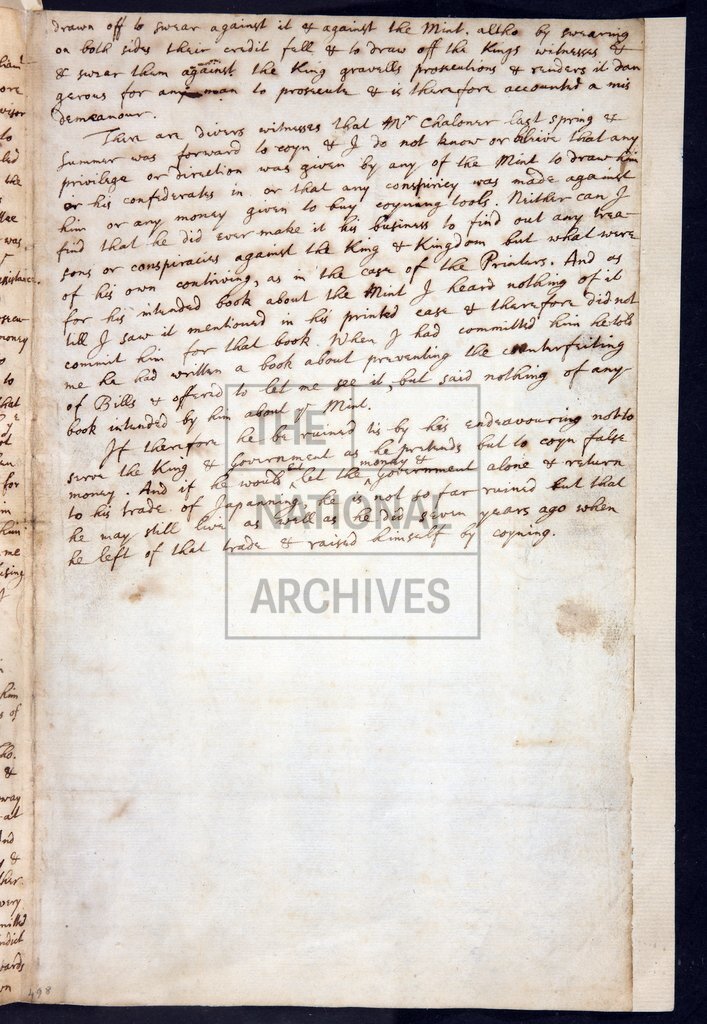 drawn off to swear against it & against the Mint. altho by swearing
on both sides their credit fell & to draw off the Kings witnesses &
& swear them against the King gravells prosecutions & renders it dan
gerous for any man to prosecute & is therefore accounted a mis
demeanour.
There are divers witnesses that Mr Chaloner last spring &
summer was forward to coyn & I do not know or beleive that any
privilege or direction was given by any of the Mint to draw him
or his confederates in or that any conspiricy was made against
him or any money given to buy coyning tools. Neither can I
find that he did ever make it his business to find out any trea-
sons or conspiracies against the King & Kingdom but what were
of his own contriving, as in the case of the Printers. And as
for his intended book about the Mint I heard nothing of it
till I saw it mentioned in his printed case & therefore did not
commit him for that book. When I had committed him he told
me he had written a book about preventing the counterfeiting
of Bills & offered to let me see it, but said nothing of any
book intended by him about ye Mint.
If therefore he be ruined tis by his endeavouring not to
serve the King & Government as he pretends but to coyn false
money. And if he would but let the money & Government alone & return
to his trade of Japanning, he is not so far ruined but that
he may still live as well as he did seven years ago when
he left of that trade & raised himself by coyning.
THE
NATIONAL
ARCHIVES
498